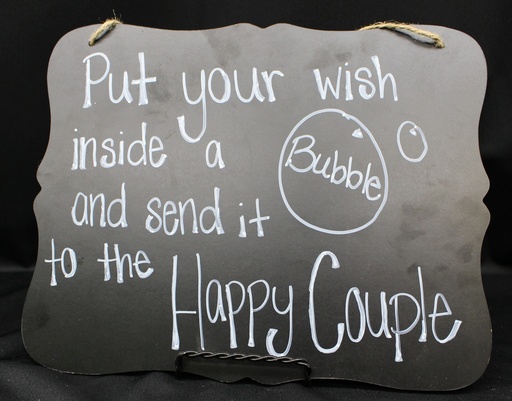 Put your wish
inside a Bubble
and send it
to the Happy Couple